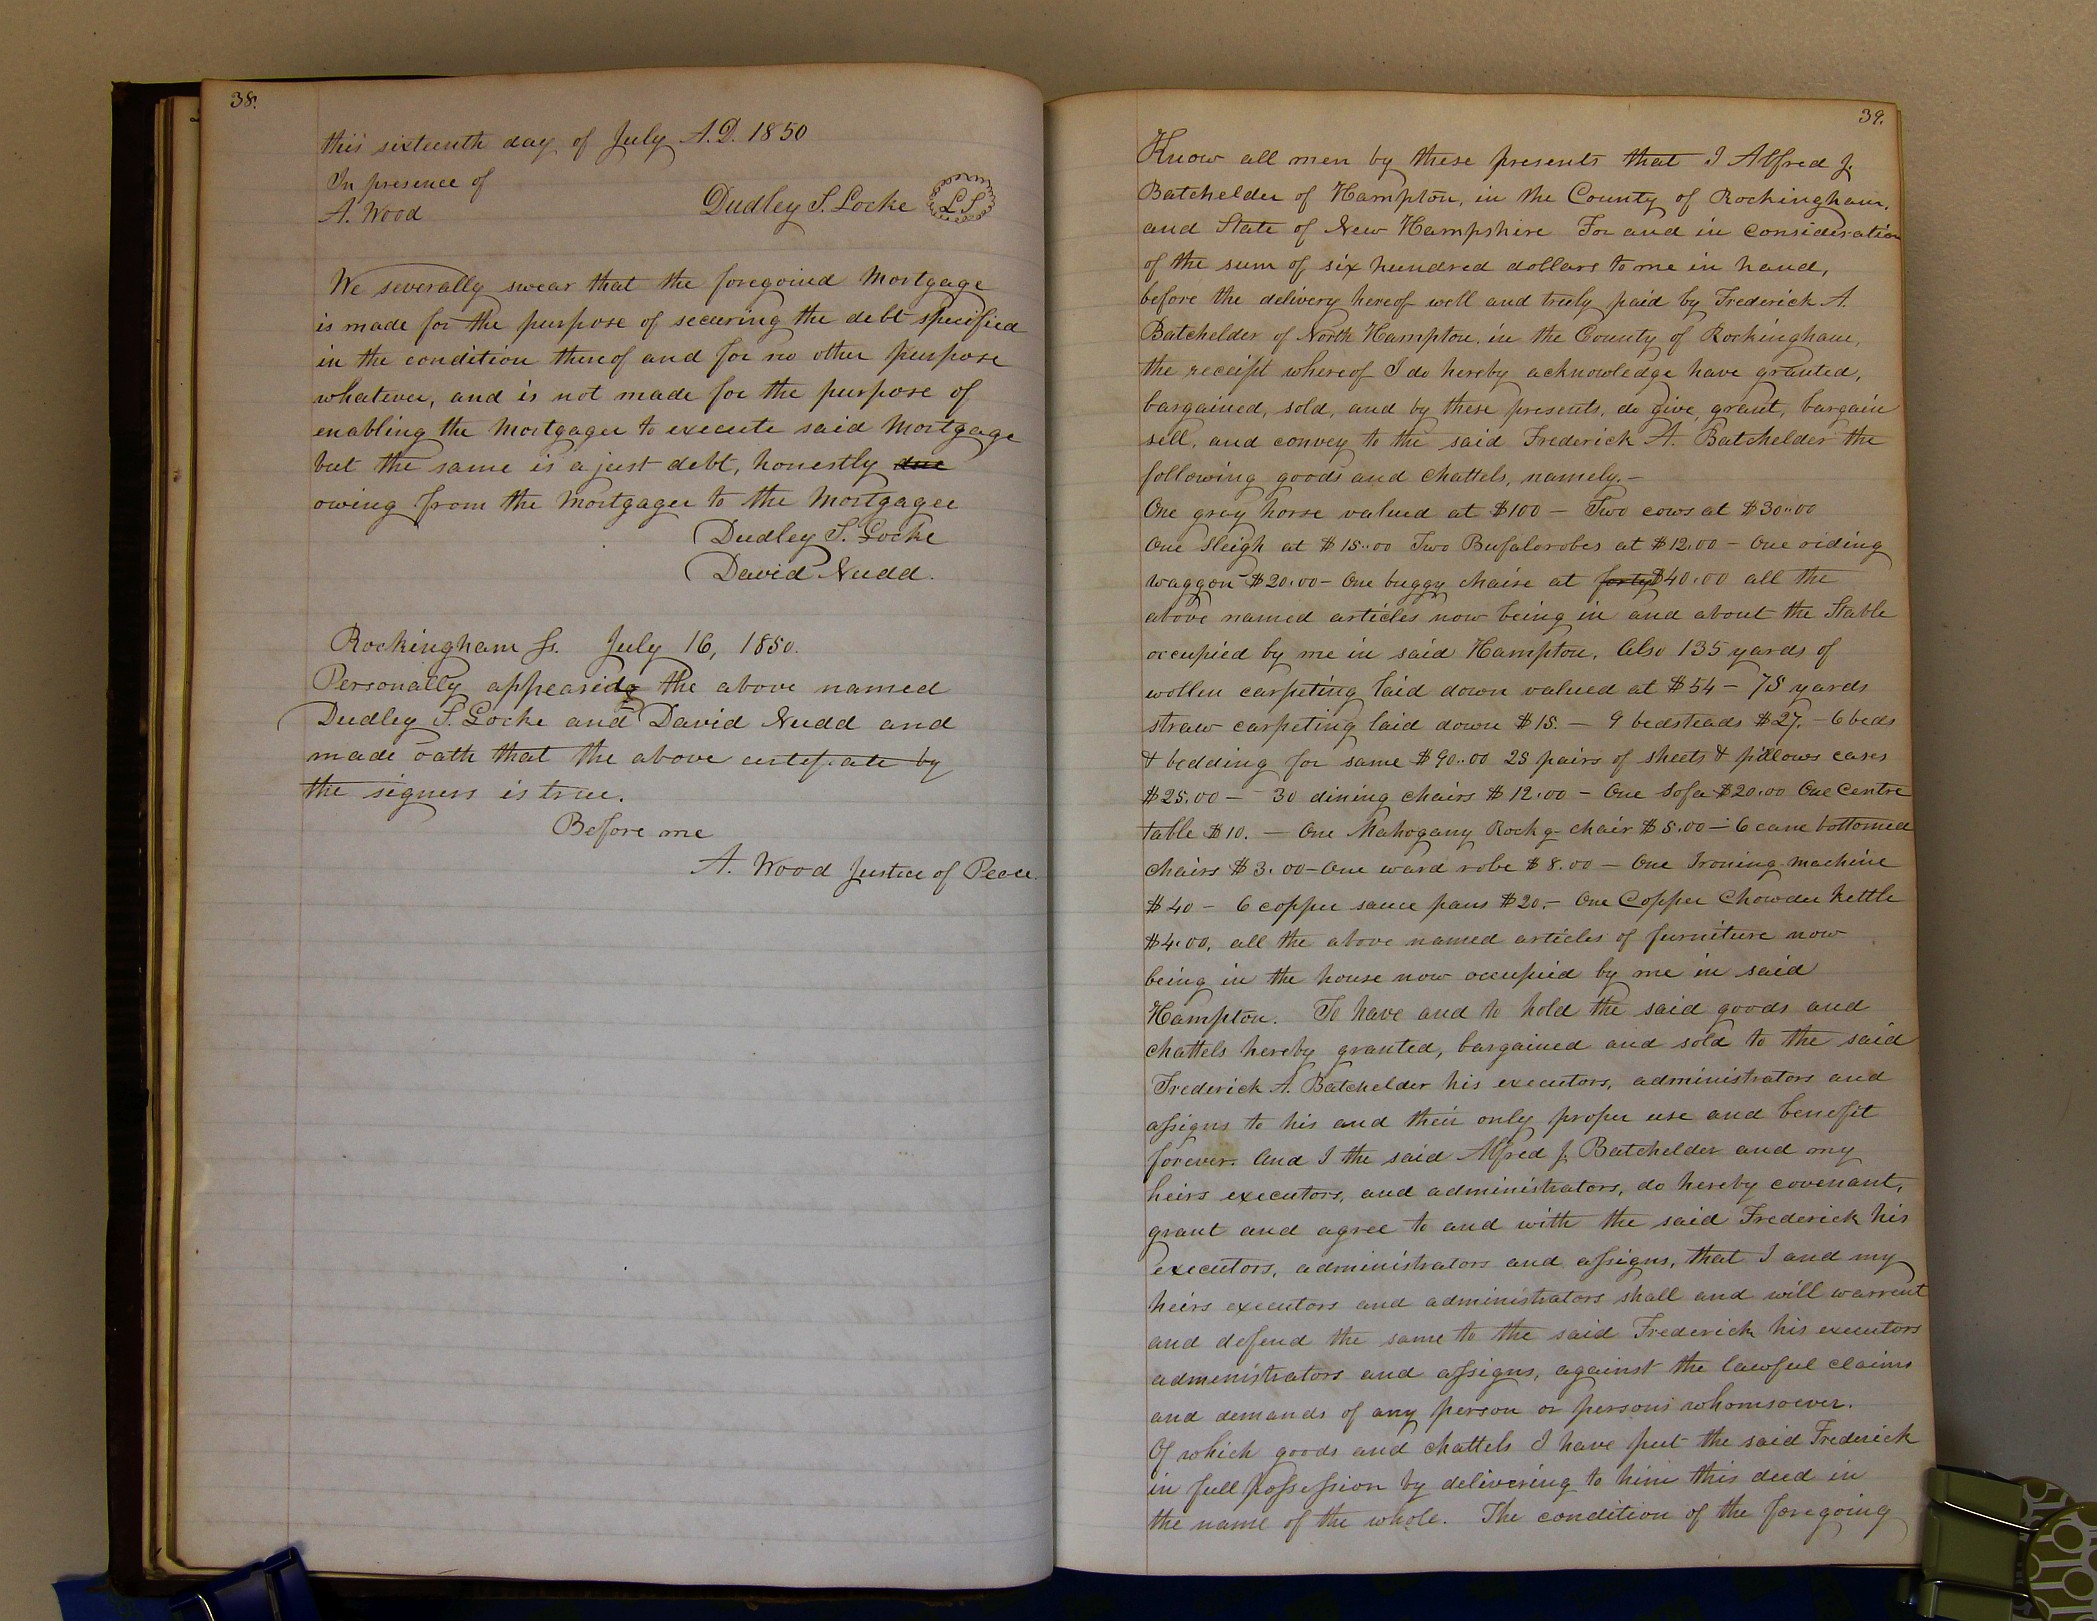 38.
this sixteenth day of July A.D. 1850
In presence of
A. Wood
Dudley S. Locke LS
We severally swear that the foregoind Mortgage
is made for the purpose of securing the debt specified
in the condition thereof and for no other purpose
whatever, and is not made for the purpose of
enabling the Mortgager to execute said Mortgage
but the same is a just debt, honestly due
owing from the Mortgager to the Mortgagee
Dudley S. Locke
David Nudd.
Rockingham Ss. July 16, 1850.
Personally appeared the above named
Dudley S. Locke and David Nudd and
made oath that the above certificate by
the signers is true.
Before me
A. Wood Justice of Peace.
39.
Know all men by these presents that I Alfred J.
Batchelder of Hampton, in the County of Rockingham,
and State of New Hampshire For and in consideration
of the sum of six hundred dollars to me in hand,
before the delivery hereof well and truly paid by Frederick A.
Batchelder of North Hampton, in the County of Rockingham,
the receipt whereof I do hereby acknowledge have granted,
bargained, sold, and by these presents, do give, grant, bargain
sell, and convey to the said Frederick A. Batchelder the
following goods and chattels, namely.-
One gray horse valued at $100 - Two cows at $30.00
One Sleigh at $15.00 Two Bufalorobes at $12.00 - One riding
waggon $20.00 - One buggy chaise at forty $40.00 all the
above named articles now being in and about the Stable
occupied by me in said Hampton. Also 135 yards of
wollen carpeting laid down valued at $54 - 75 yards
straw carpeting laid down $15. - 9 bedsteads $27. - 6 beds
& bedding for same $90.00 25 pairs of sheets & pillows cases
$25.00 - 30 dining chairs $12.00 - One Sofa $20.00 One Centre
table $10. - One Mahogany Rockg chair $5.00 - 6 cane bottomed
chairs $3.00 - One ward robe $8.00 - One Ironing machine
$40 - 6 copper sauce pans $20. - One Copper Chowder Kettle
$4.00, all the above named articles of furniture now
being in the house now occupied by me in said
Hampton. To have and to hold the said goods and
chattels hereby granted, bargained and sold to the said
Frederick A. Batchelder his executors, administrators and
assigns to his and their only proper use and benefit
forever. And I the said Alfred J. Batchelder and my
heirs executors, and administrators, do hereby covenant,
grant and agree to and with the said Frederick his
executors, administrators and assigns, that I and my
heirs executors and administrators shall and will warrent
and defend the same to the said Frederick his executors
administrators and assigns, against the lawful claims
and demands of any person or persons whomsoever.
Of which goods and chattels I have put the said Frederick
in full possession by delivering to him this deed in
the name of the whole. The condition of the foregoing